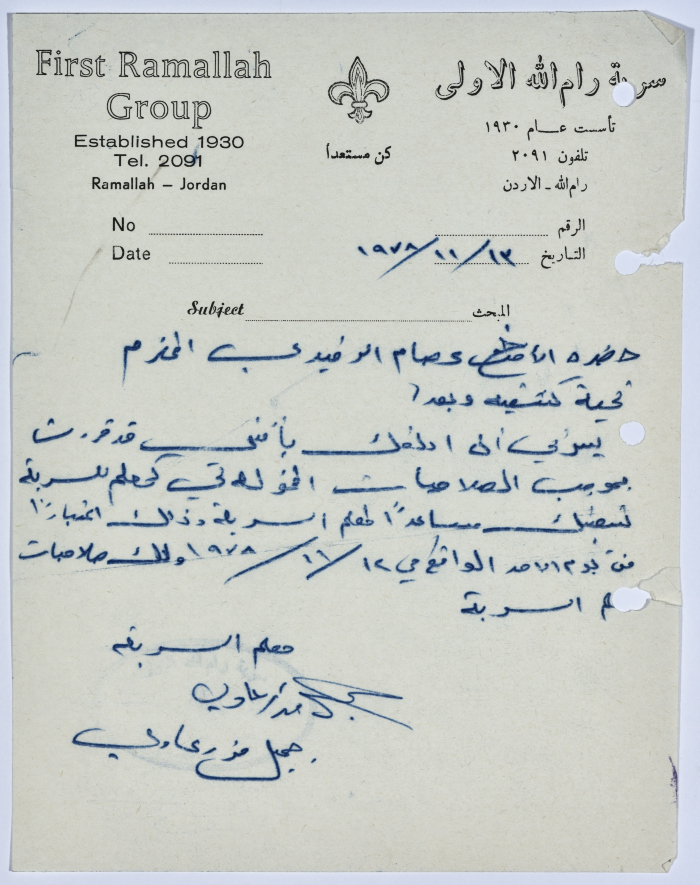 First Ramallah
Group
Established 1930
Tel. 2091
Ramallah – Jordan
سرية رام الله الاولى
تأسست عـام ١٩٣٠
تلفون ٢٠٩١
رام الله - الاردن
كن مستعداً
No
Date
الرقم
التـاريخ ١٩٧٨/١١/١٣
Subject المبحث
حضرة الاخ عصام الرفيدي المحترم
تحية كشفية وبعد،
يسرني أن ابلغك بأنني قد قررت
بموجب الصلاحيات المخوله لي كمعلم للسرية
تعيينك مساعداً لمعلم السرية وذلك اعتباراً
من يوم الاحد الواقع في ١٢/١١/١٩٧٨ ولك صلاحيات
م السرية
معلم السرية
جميل